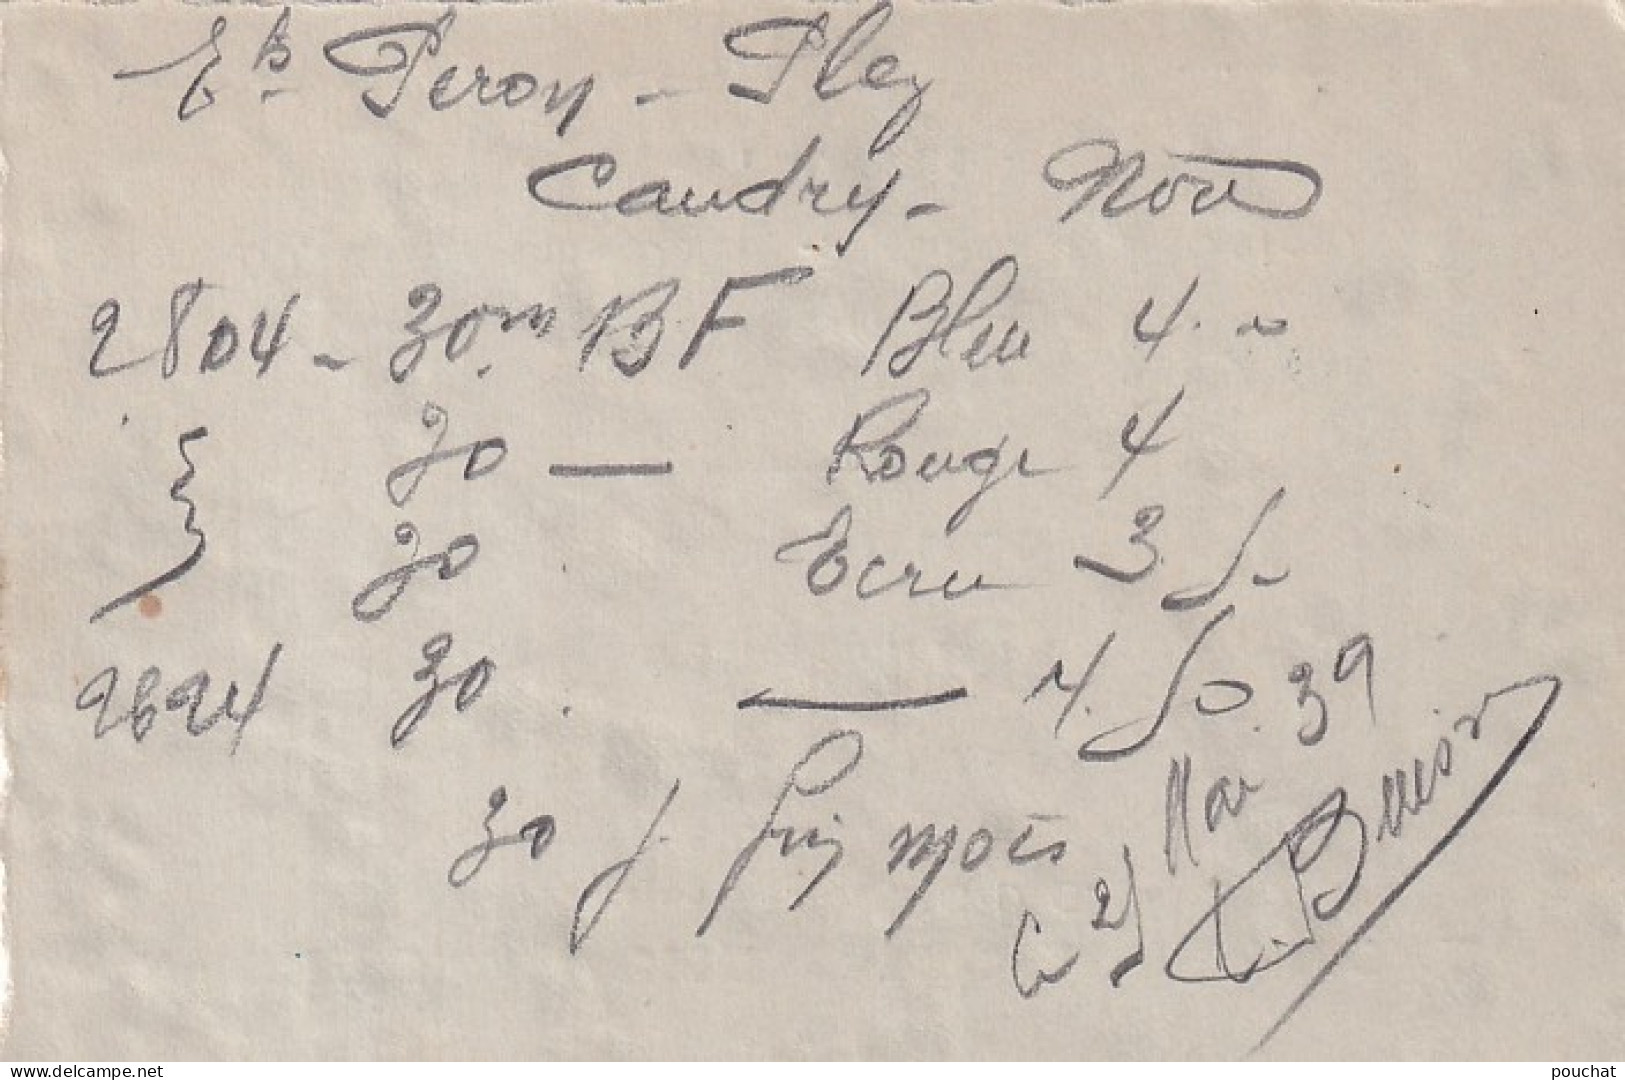 Ets Peron - Pley
Caudry - Nord
2804 - 30m BF Bleu 4. -
30 — Rouge 4
30 Ecru 3.5 -
2624 30 — 4.50
30 j. fin mois
le 25 Mai 39
delcampe.net
pouchat